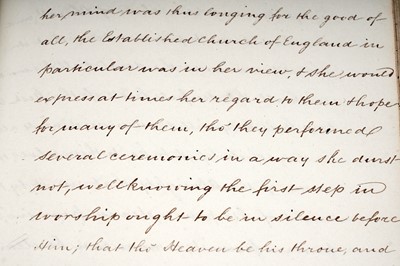 her mind was thus longing for the good of
all, the Established Church of England in
particular was in her view, & she would
express at times her regard to them & hope
for many of them, tho' they performed
several ceremonies in a way she durst
not, well knowing the first step in
worship ought to be in silence before
Him; that tho' Heaven be his throne, and